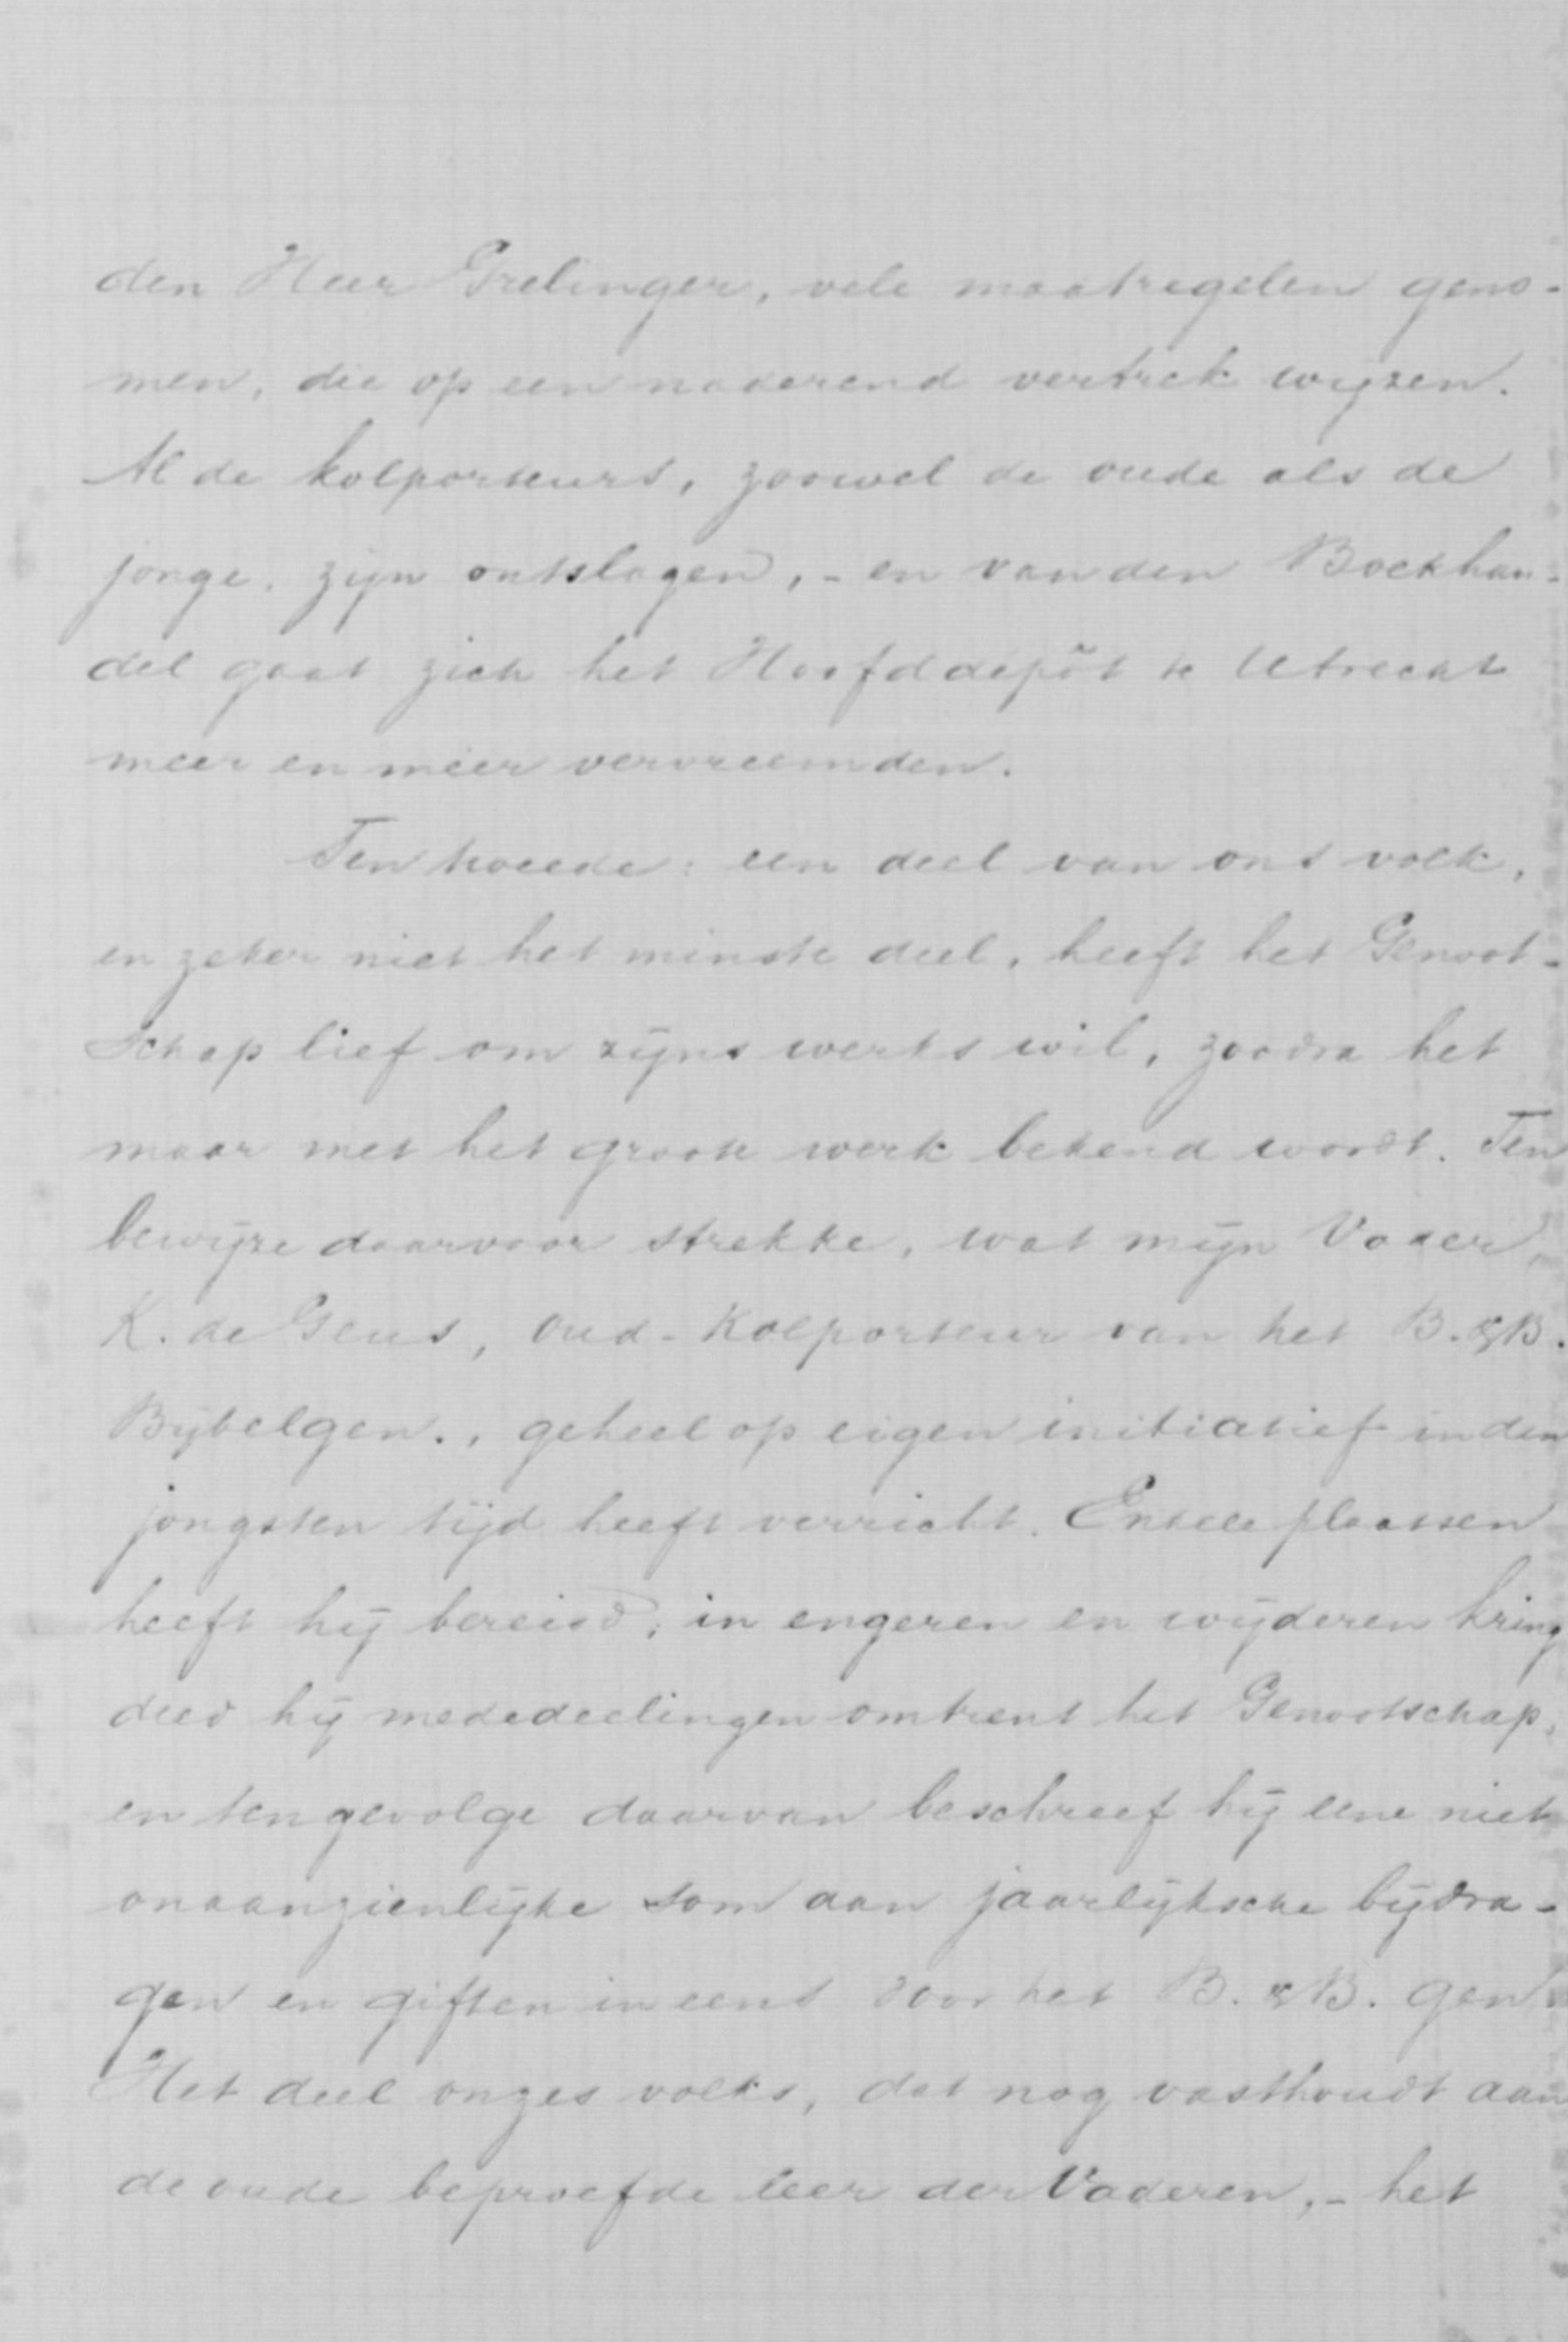 den Heer Grelinger, vele maatregelen geno-
men, die op een naderend vertrek wijzen.
Al de kolporteurs, zoowel de oude als de
jonge, zijn ontslagen, - en van den Boekhan-
del gaat zich het Hoofddepôt te Utrecht
meer en meer vervreemden.
Ten tweede: een deel van ons volk,
en zeker niet het minste deel, heeft het Genoot-
schap lief om zijns werks wil, zoodra het
maar met het groote werk bekend wordt. Ten
bewijze daarvoor strekke, wat mijn Vader,
K. de Geus, oud-Kolporteur van het B. & B.
Bijbelgen., geheel op eigen initiatief in den
jongsten tijd heeft verricht. Enkele plaatsen
heeft hij bereisd; in engeren en wijderen kring
deed hij mededeelingen omtrent het Genootschap,
en ten gevolge daarvan beschreef hij eene niet
onaanzienlijke som aan jaarlijksche bijdra-
gen en giften in eens voor het B. & B. gen.
Het deel onzes volks, dat nog vasthoudt aan
de oude beproefde leer der Vaderen, - het